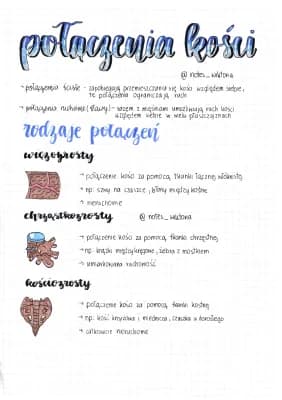 połączenia kości
@ notes_wiktoria
→ połączenia ścisłe - zapobiegają przemieszczaniu się kości względem siebie,
te połączenia ograniczają ruch
→ połączenia ruchome (stawy) - razem z mięśniami umożliwiają ruch kości
względem siebie w wielu płaszczyznach
rodzaje połączeń
więzozrosty
→ połączenie kości za pomocą tkanki łącznej włóknistej
→ np: szwy na czaszce, błony międzykostne
→ nieruchome
chrząstkozrosty @ notes_wiktoria
→ połączenie kości za pomocą tkanki chrzęstnej
→ np: krążki międzykręgowe, żebra z mostkiem
→ umiarkowana ruchomość
kościozrosty
→ połączenie kości za pomocą tkanki kostnej
→ np: kość krzyżowa i miednica, czaszka u dorosłego
→ całkowicie nieruchome